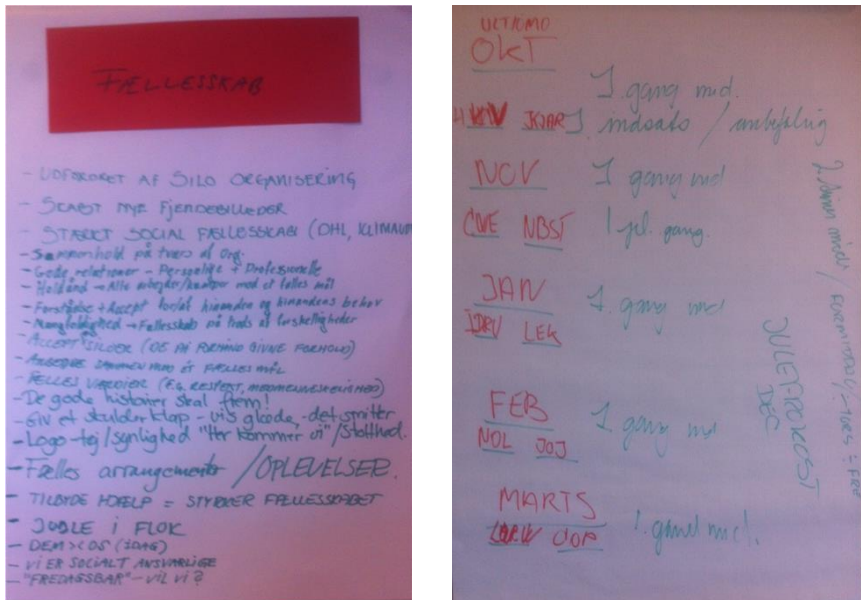 FÆLLESSKAB
- UDFORDRET AF SILO ORGANISERING
- SKABT NYE FJENDEBILLEDER
- STÆRKT SOCIAL FÆLLESSKAB (DHL, KLIMA
- Sammenhold på tværs af org.
- Gode relationer - Personlige + Professionelle
- Holdånd → Alle arbejder/kæmper med et fælles mål
- Forståelse + Accept for/af hinanden og hinandens behov
- Mangfoldighed → Fællesskab på trods af forskelligheder
- ACCEPT (DE PÅ FORHÅND GIVNE FORHOLD)
- ARBEJDE SAMMEN MOD ÉT FÆLLES MÅL
- FÆLLES VÆRDIER (F.G. RESPEKT, MEDMENNESKELIGHED)
- De gode historier skal frem!
- Giv et skulderklap - vis glæde, - det smitter
- Logo-tøj/synlighed "Her kommer vi"/Stolthed.
- Fælles arrangementer /OPLEVELSER.
- TILBYDE HJÆLP = STYRKER FÆLLESSKABET
- JUBLE I FLOK
- DEM > < OS (IDAG)
- VI ER SOCIALT ANSVARLIGE
- "FREDAGSBAR" - VIL VI?
ULTIMO
OKT
1. gang md.
KJAR 1. indsats / anbefaling
NOV 1 gang md
CWE NBST 1 pl. gang.
JAN 1. gang md
LEK
FEB 1 gang md
NOL JOJ
MARTS
UOP 1. gang md.
JULEFROKOST
DEC